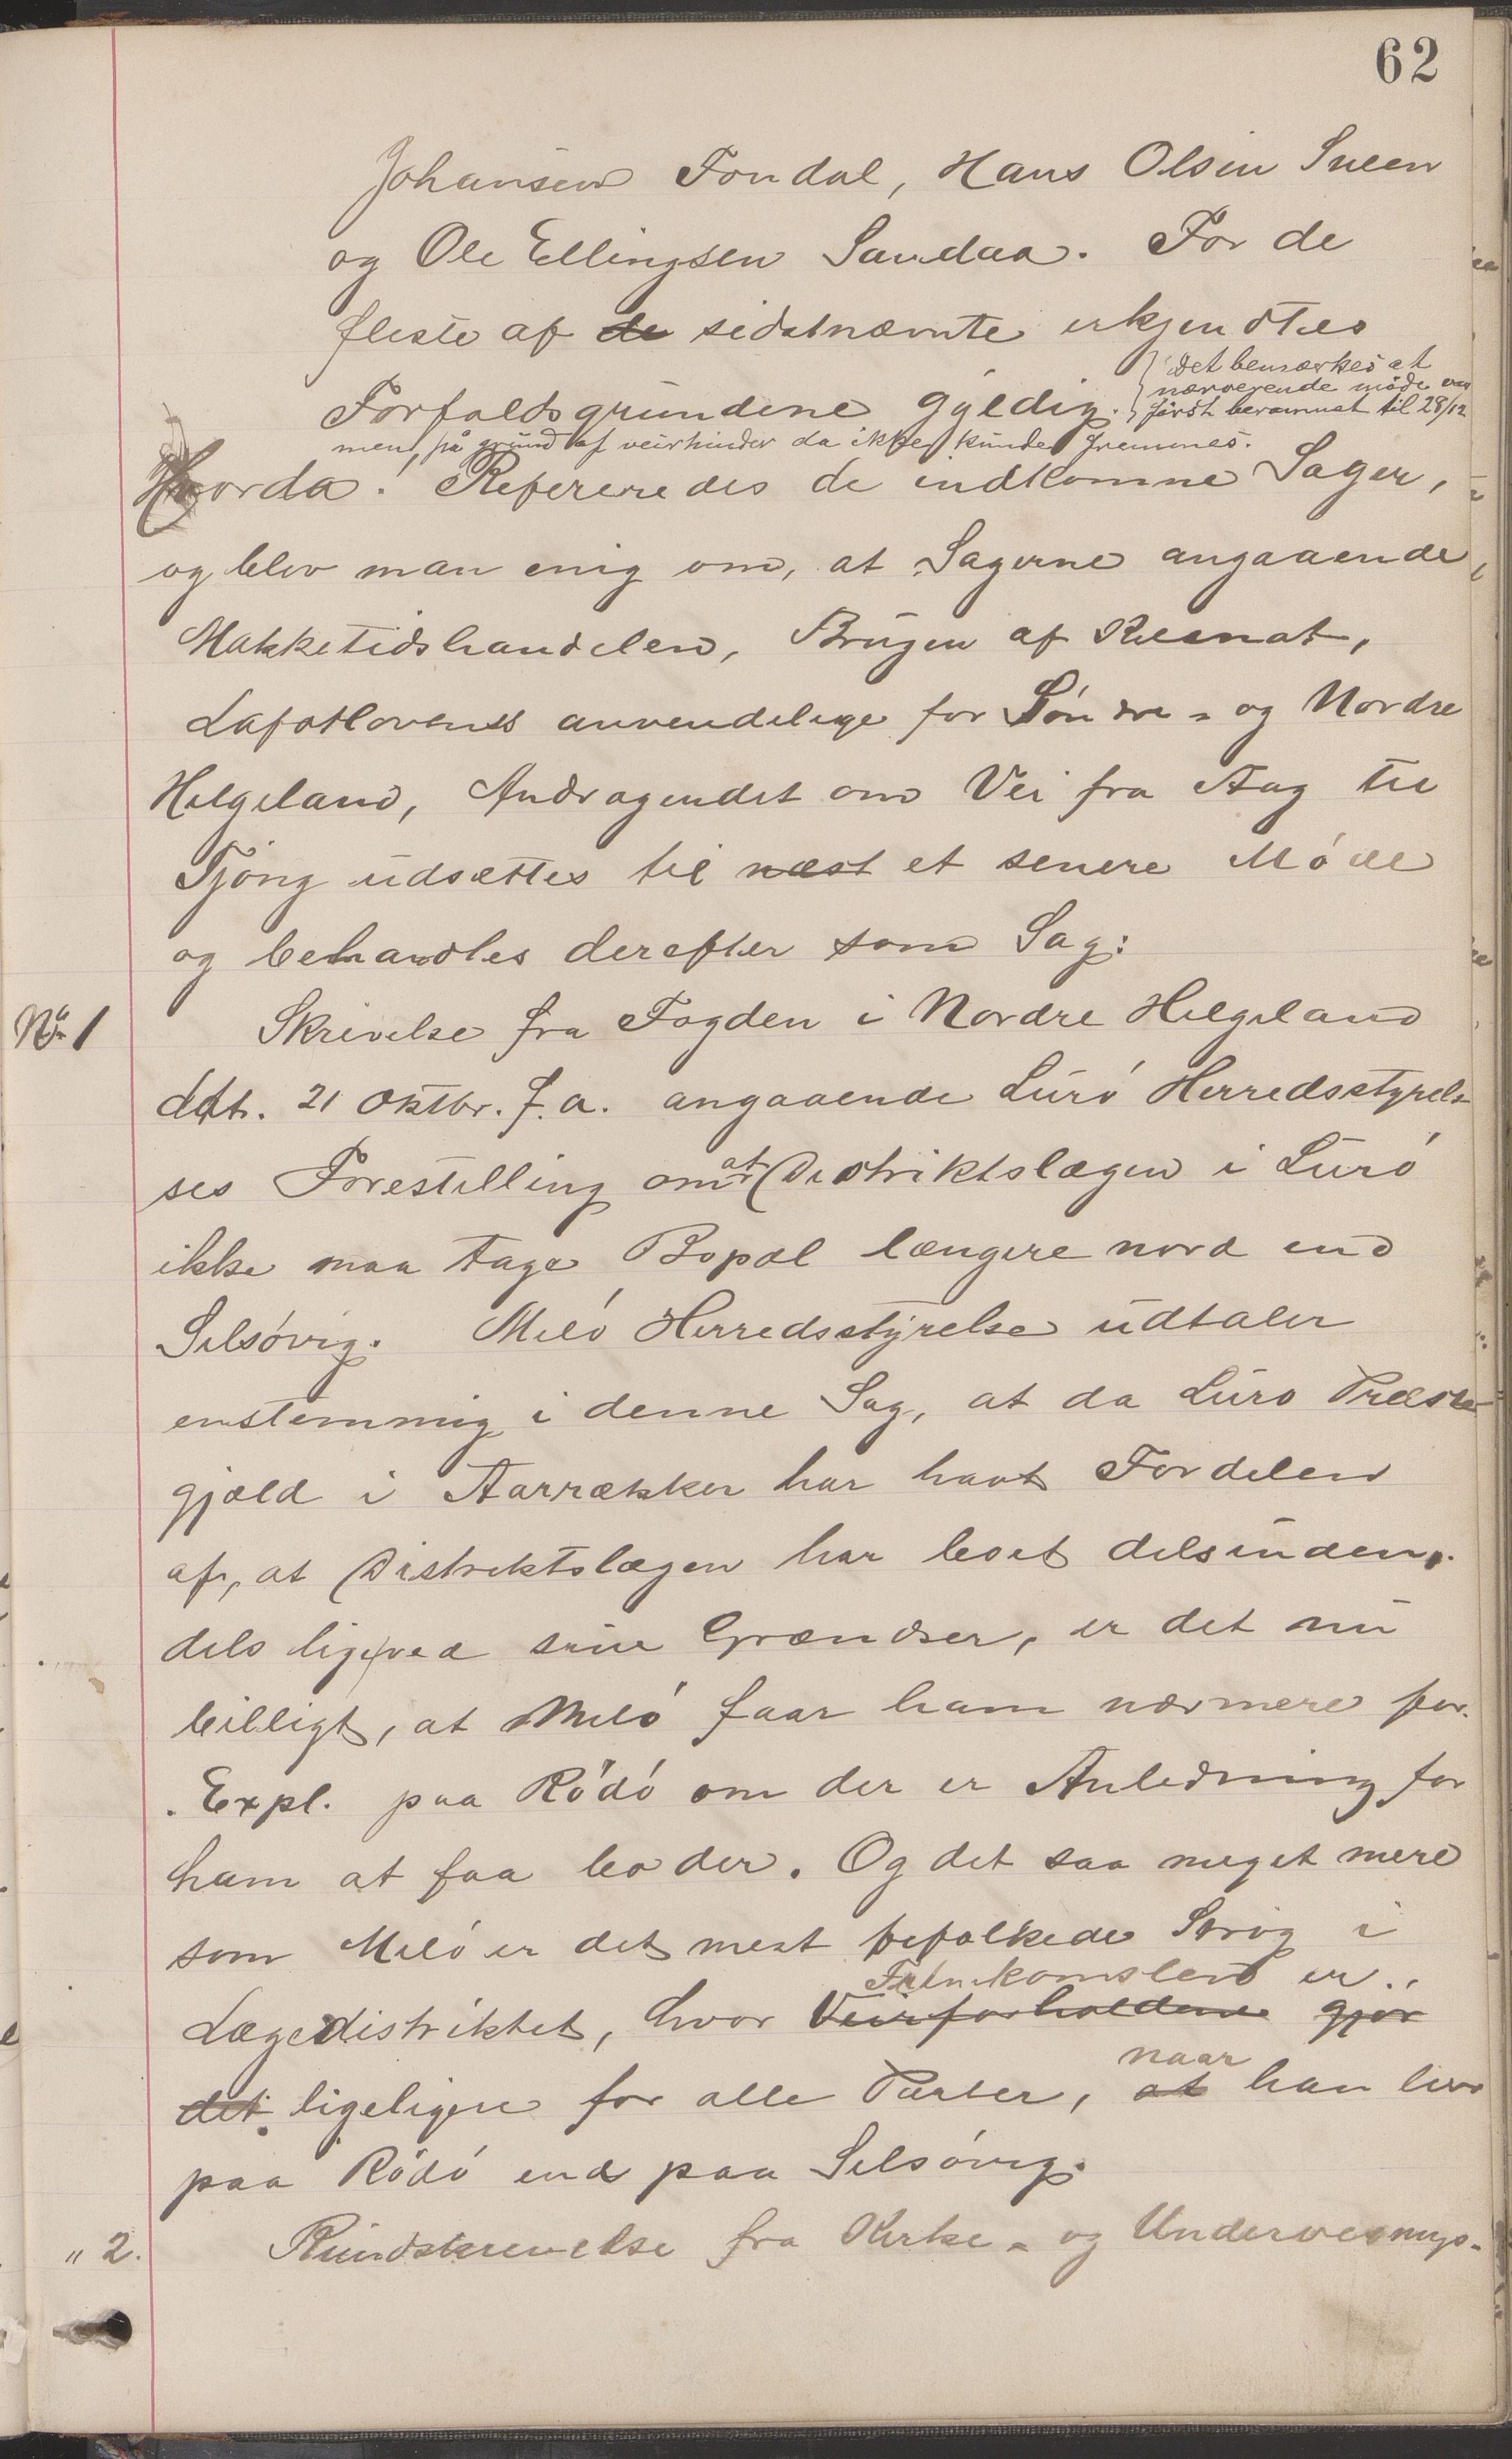 62
Johansen Fondal, Hans Olsen Sneen
og Ole Ellingsen Sandaa. For de
fleste af de sidstnævnte erkjendtes
Forfaldsgrundene gyldig.
Det bemærkes at
nærværende møde var
først berammet til 28/12
men på grund af veirhinder da ikke kunde fremmes.
Hvorda! Refereredes de indkomne Sager,
og blev man enig om, at Sagerne angaaende
Makketidshandelen, Brugen af Kunstnat,
Lafotlovens anvendelige for Søndre- og Nordre
Helgeland, Andragendet om Vei fra Aag til
Tjong udsættes til næst et senere Møde
og behandles derefter som Sag:
No 1
Skrivelse fra Fogden i Nordre Helgeland
ddt. 21 Oktbr. f.a. angaaende Lurø Herredsstyrel-
ses Forestilling om at Distriktslægen i Lurø
ikke maa tage Bopæl længere nord end
Selsøvig. Melø Herredsstyrelse udtaler
enstemmig i denne Sag, at da Lurø Præste-
gjæld i Aarrækker har havt Fordelen
af, at Distriktslægen har boet dels inden,
dels lige ved sine Grændser, er det nu
billigt, at Melø faar ham nærmere for
Expl. paa Rødø om der er Anledning for
ham at faa bo der. Og det saa meget mere
som Melø er det mest befolkede Strøg i
Fremkomsten er
Lægedistriktet, hvor Veirforholdene gjør
naar
det ligeligere for alle Parter, at han bor
paa Rødø end paa Selsøvig.
" 2.
Rundskrivelse fra Kirke- og Undervisnings-